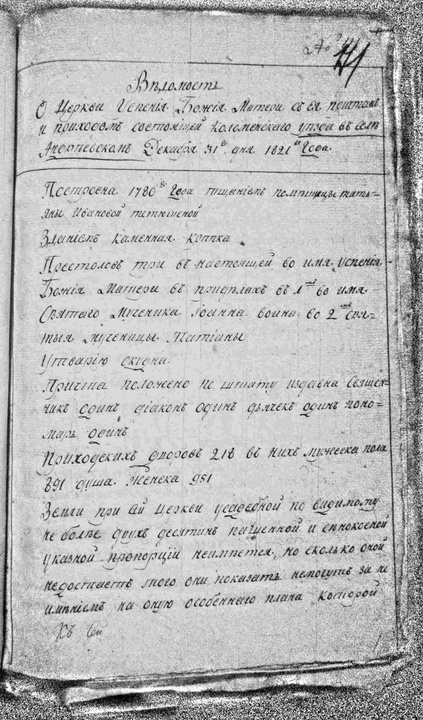 Вѣдомость
О Церкви Успенія Божія Матери съ ея притчомъ
и приходомъ состоящей Коломенскаго уѣзда въ селѣ
Андреевскомъ Декабря 31 дня 1821 Года.
Построена 1780 Года тщаніемъ помѣщицы тать-
яны Ивановой
Зданіемъ каменная крѣпка
Престоловъ три въ настоящей во имя Успенія
Божія Матери въ придѣлахъ въ 1 во имя
Святаго Мученика Іоанна воина во 2 свя-
тыя мученицы Татіаны
Утварію скудна
Причта положено по штату издавна священ-
никъ одинъ діаконъ одинъ дьячекъ одинъ поно-
марь одинъ
Приходскихъ дворовъ 218 въ нихъ мужеска пола
891 душа. женска 951
Земли при сей Церкви усадебной по видимому
не болѣе двухъ десятинъ пашенной и сѣнокосной
указной пропорціи неимѣется, но сколько оной
недостаетъ того они показать немогутъ за не
имѣніемъ на оную особеннаго плана которой
Къ сей